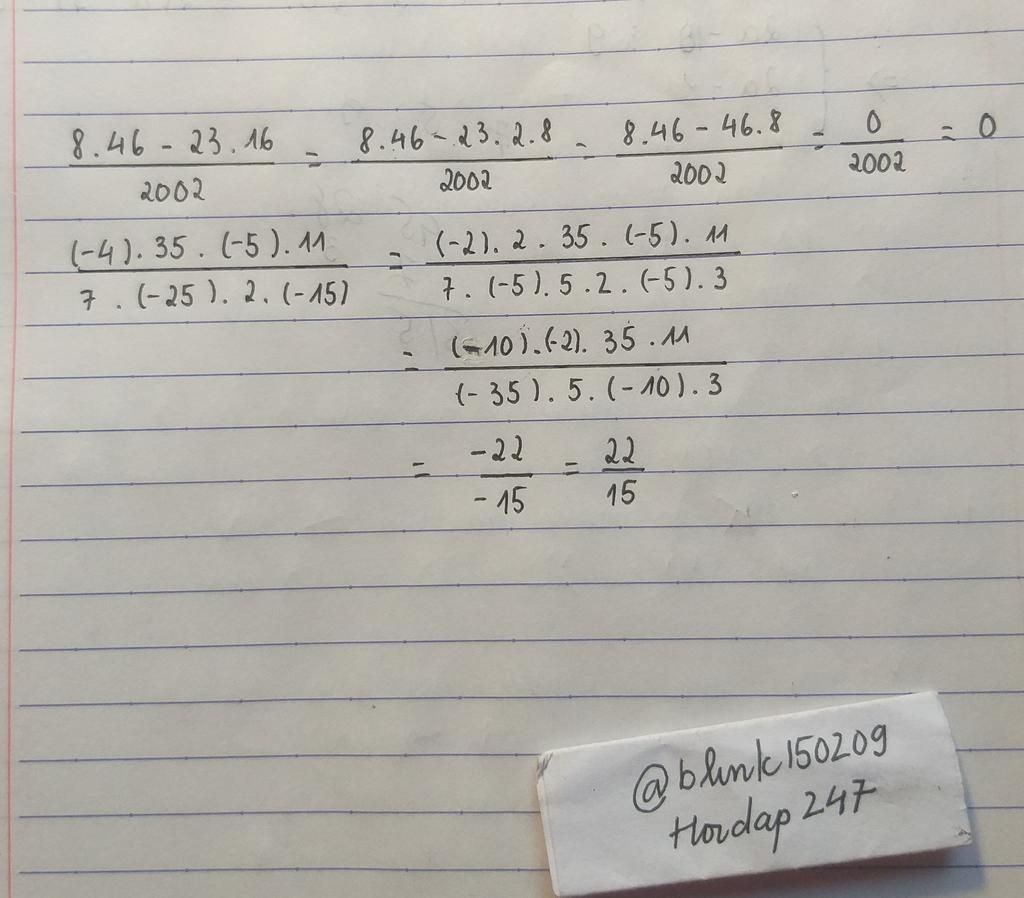 8.46 - 23.16 / 2002 = 8.46 - 23.2.8 / 2002 = 8.46 - 46.8 / 2002 = 0 / 2002 = 0
(-4).35.(-5).11 / 7.(-25).2.(-15) = (-2).2.35.(-5).11 / 7.(-5).5.2.(-5).3
= (-10).(-2).35.11 / (-35).5.(-10).3
= -22 / -15 = 22 / 15
@blink150209
Hoidap 247